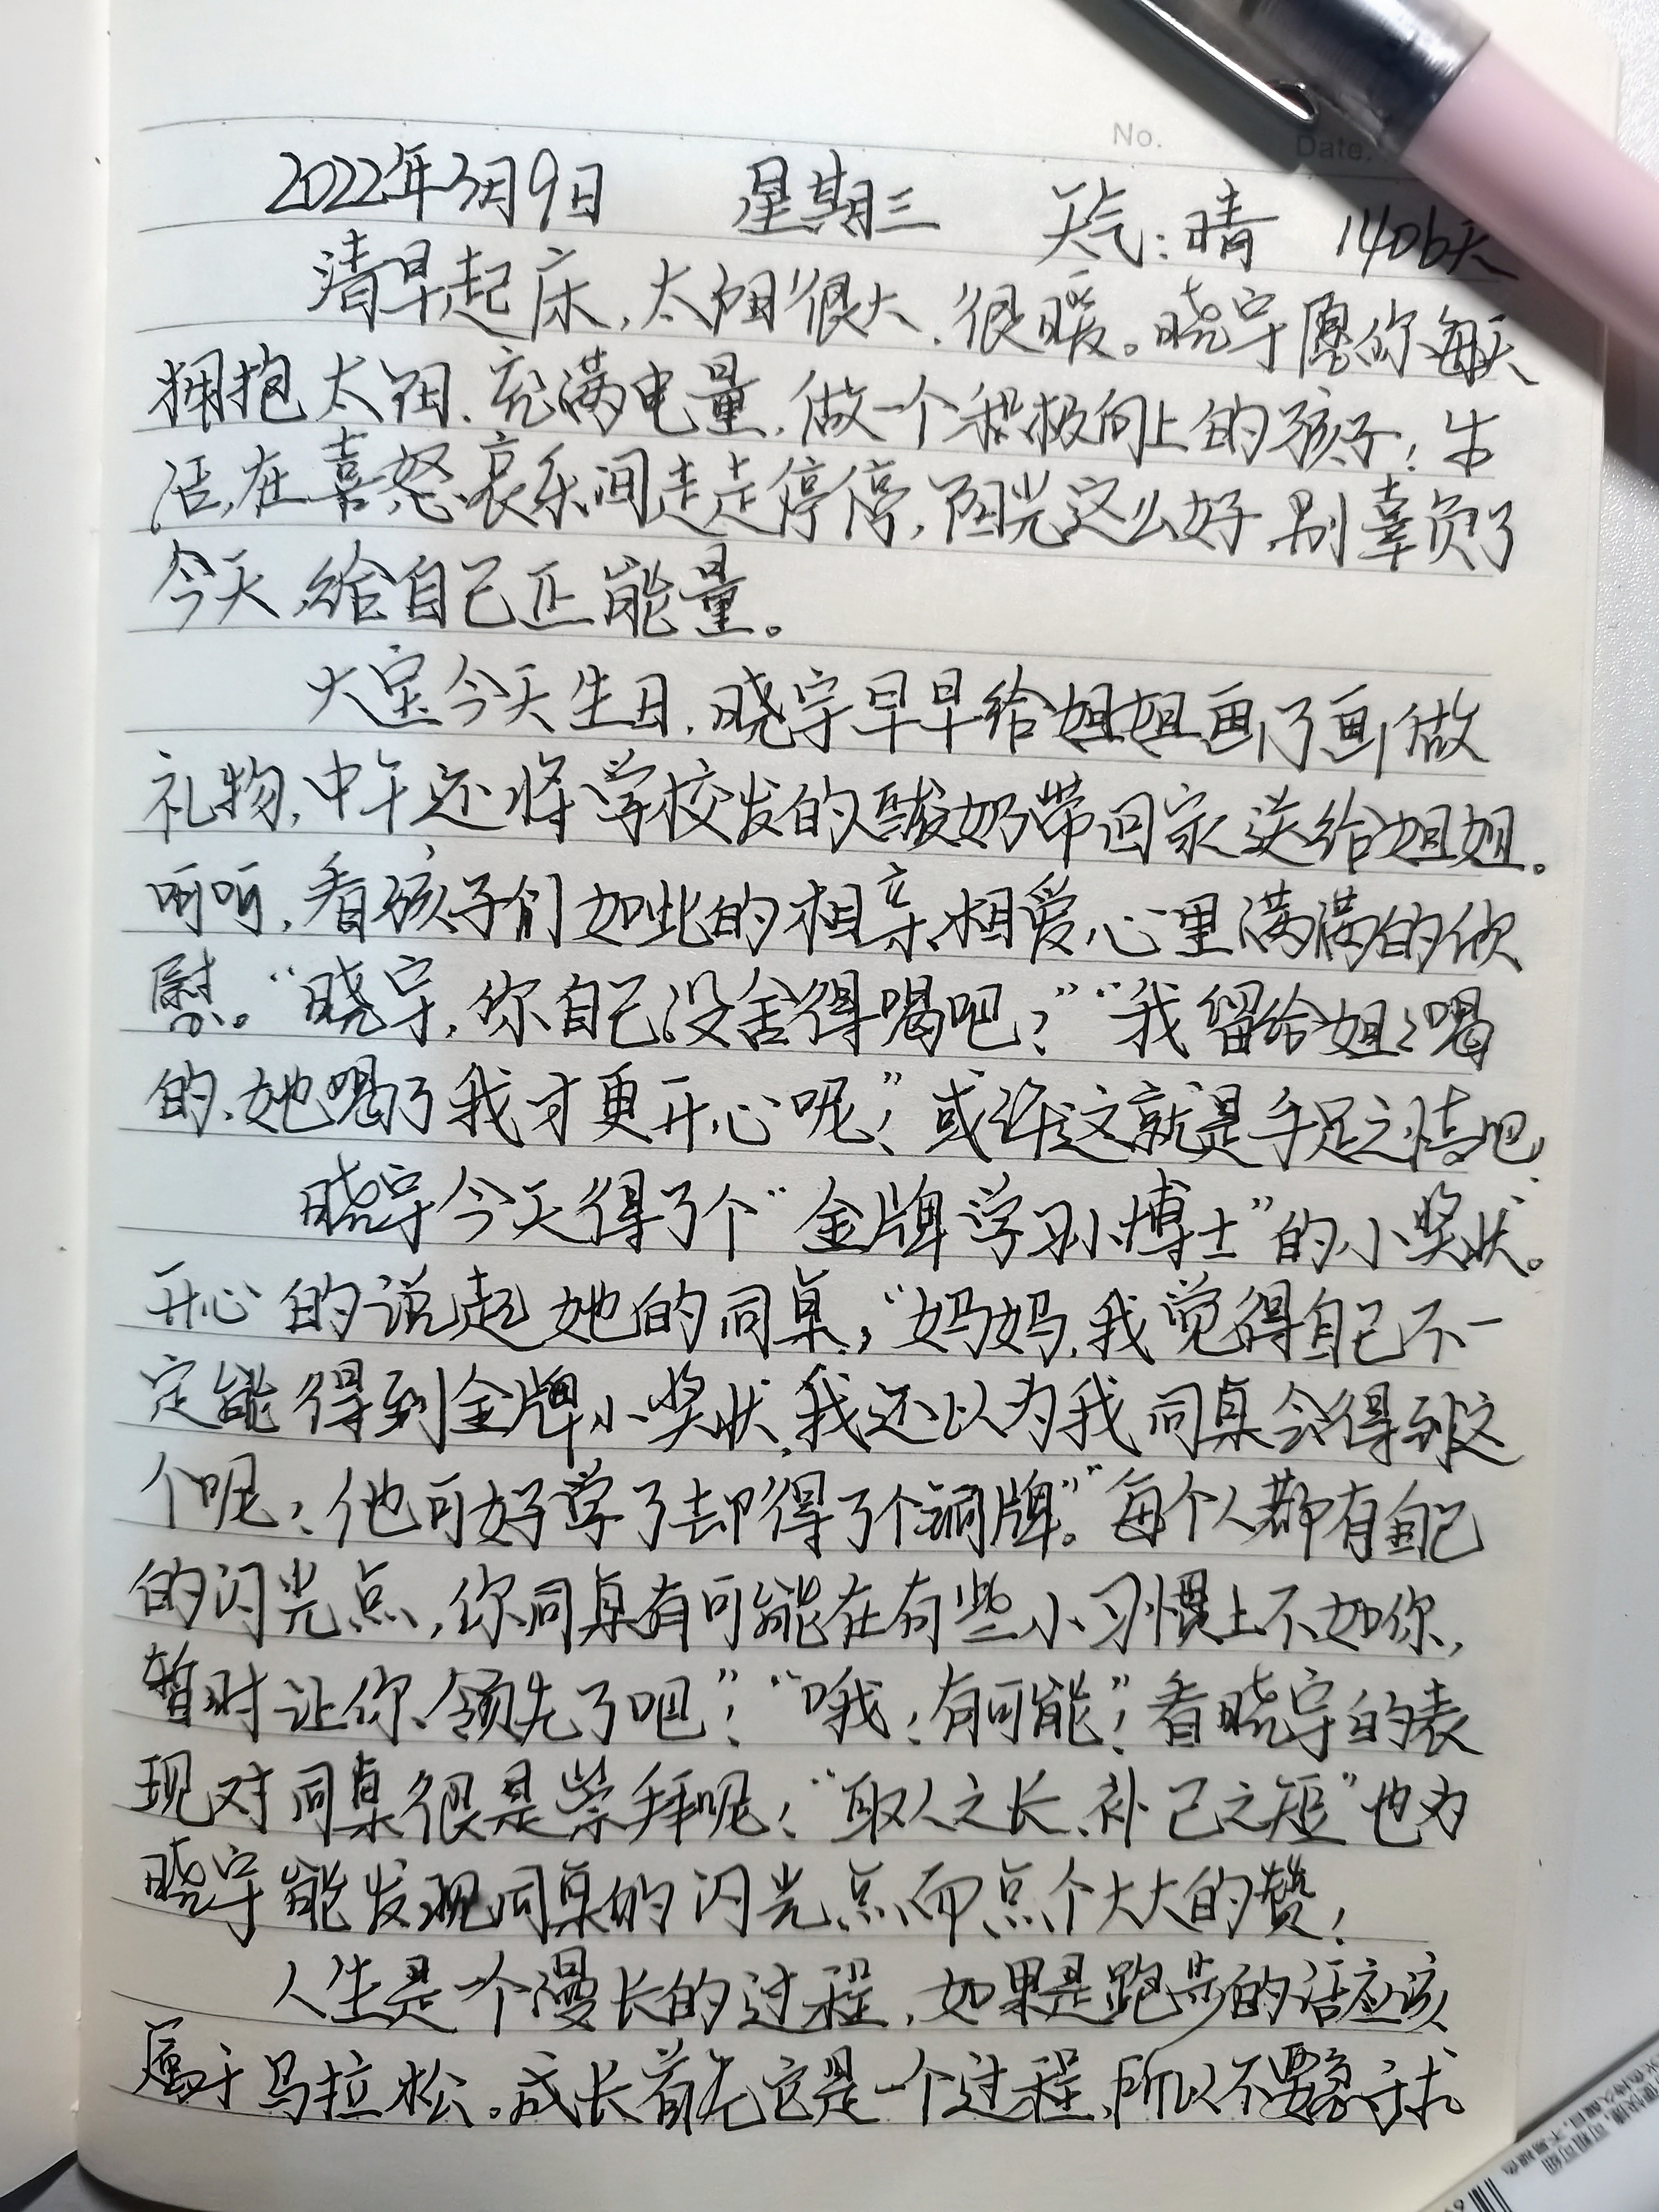 No.
Date.
2022年3月9日 星期三 天气:晴 1406天
清早起床,太阳很大、很暖。晓宇愿你每天
拥抱太阳、充满电量,做一个积极向上的孩子!生
活,在喜怒哀乐间走走停停,阳光这么好,别辜负了
今天,给自己正能量。
大宝今天生日,晓宇早早给姐姐画了画做
礼物,中午还将学校发的酸奶带回家送给姐姐。
呵呵,看孩子们如此的相亲相爱,心里满满的欣
慰。“晓宇,你自己没舍得喝吧?”“我留给姐姐喝
的、她喝了我才更开心呢!”或许这就是手足之情吧!
晓宇今天得了个“金牌学习小博士”的小奖状。
开心的说起她的同桌,“妈妈,我觉得自己不一
定能得到金牌小奖状,我还以为我同桌会得到这
个呢!他可好学了却得了个铜牌。”“每个人都有自己
的闪光点,你同桌有可能在有些小习惯上不如你,
暂时让你领先了吧”!“哦!有可能”!看晓宇的表
现对同桌很是崇拜呢!“取人之长、补己之短”也为
晓宇能发现同桌的闪光点而点个大大的赞!
人生是一个漫长的过程,如果是跑步的话应该
属于马拉松。成长首先它是一个过程,所以不要急于求